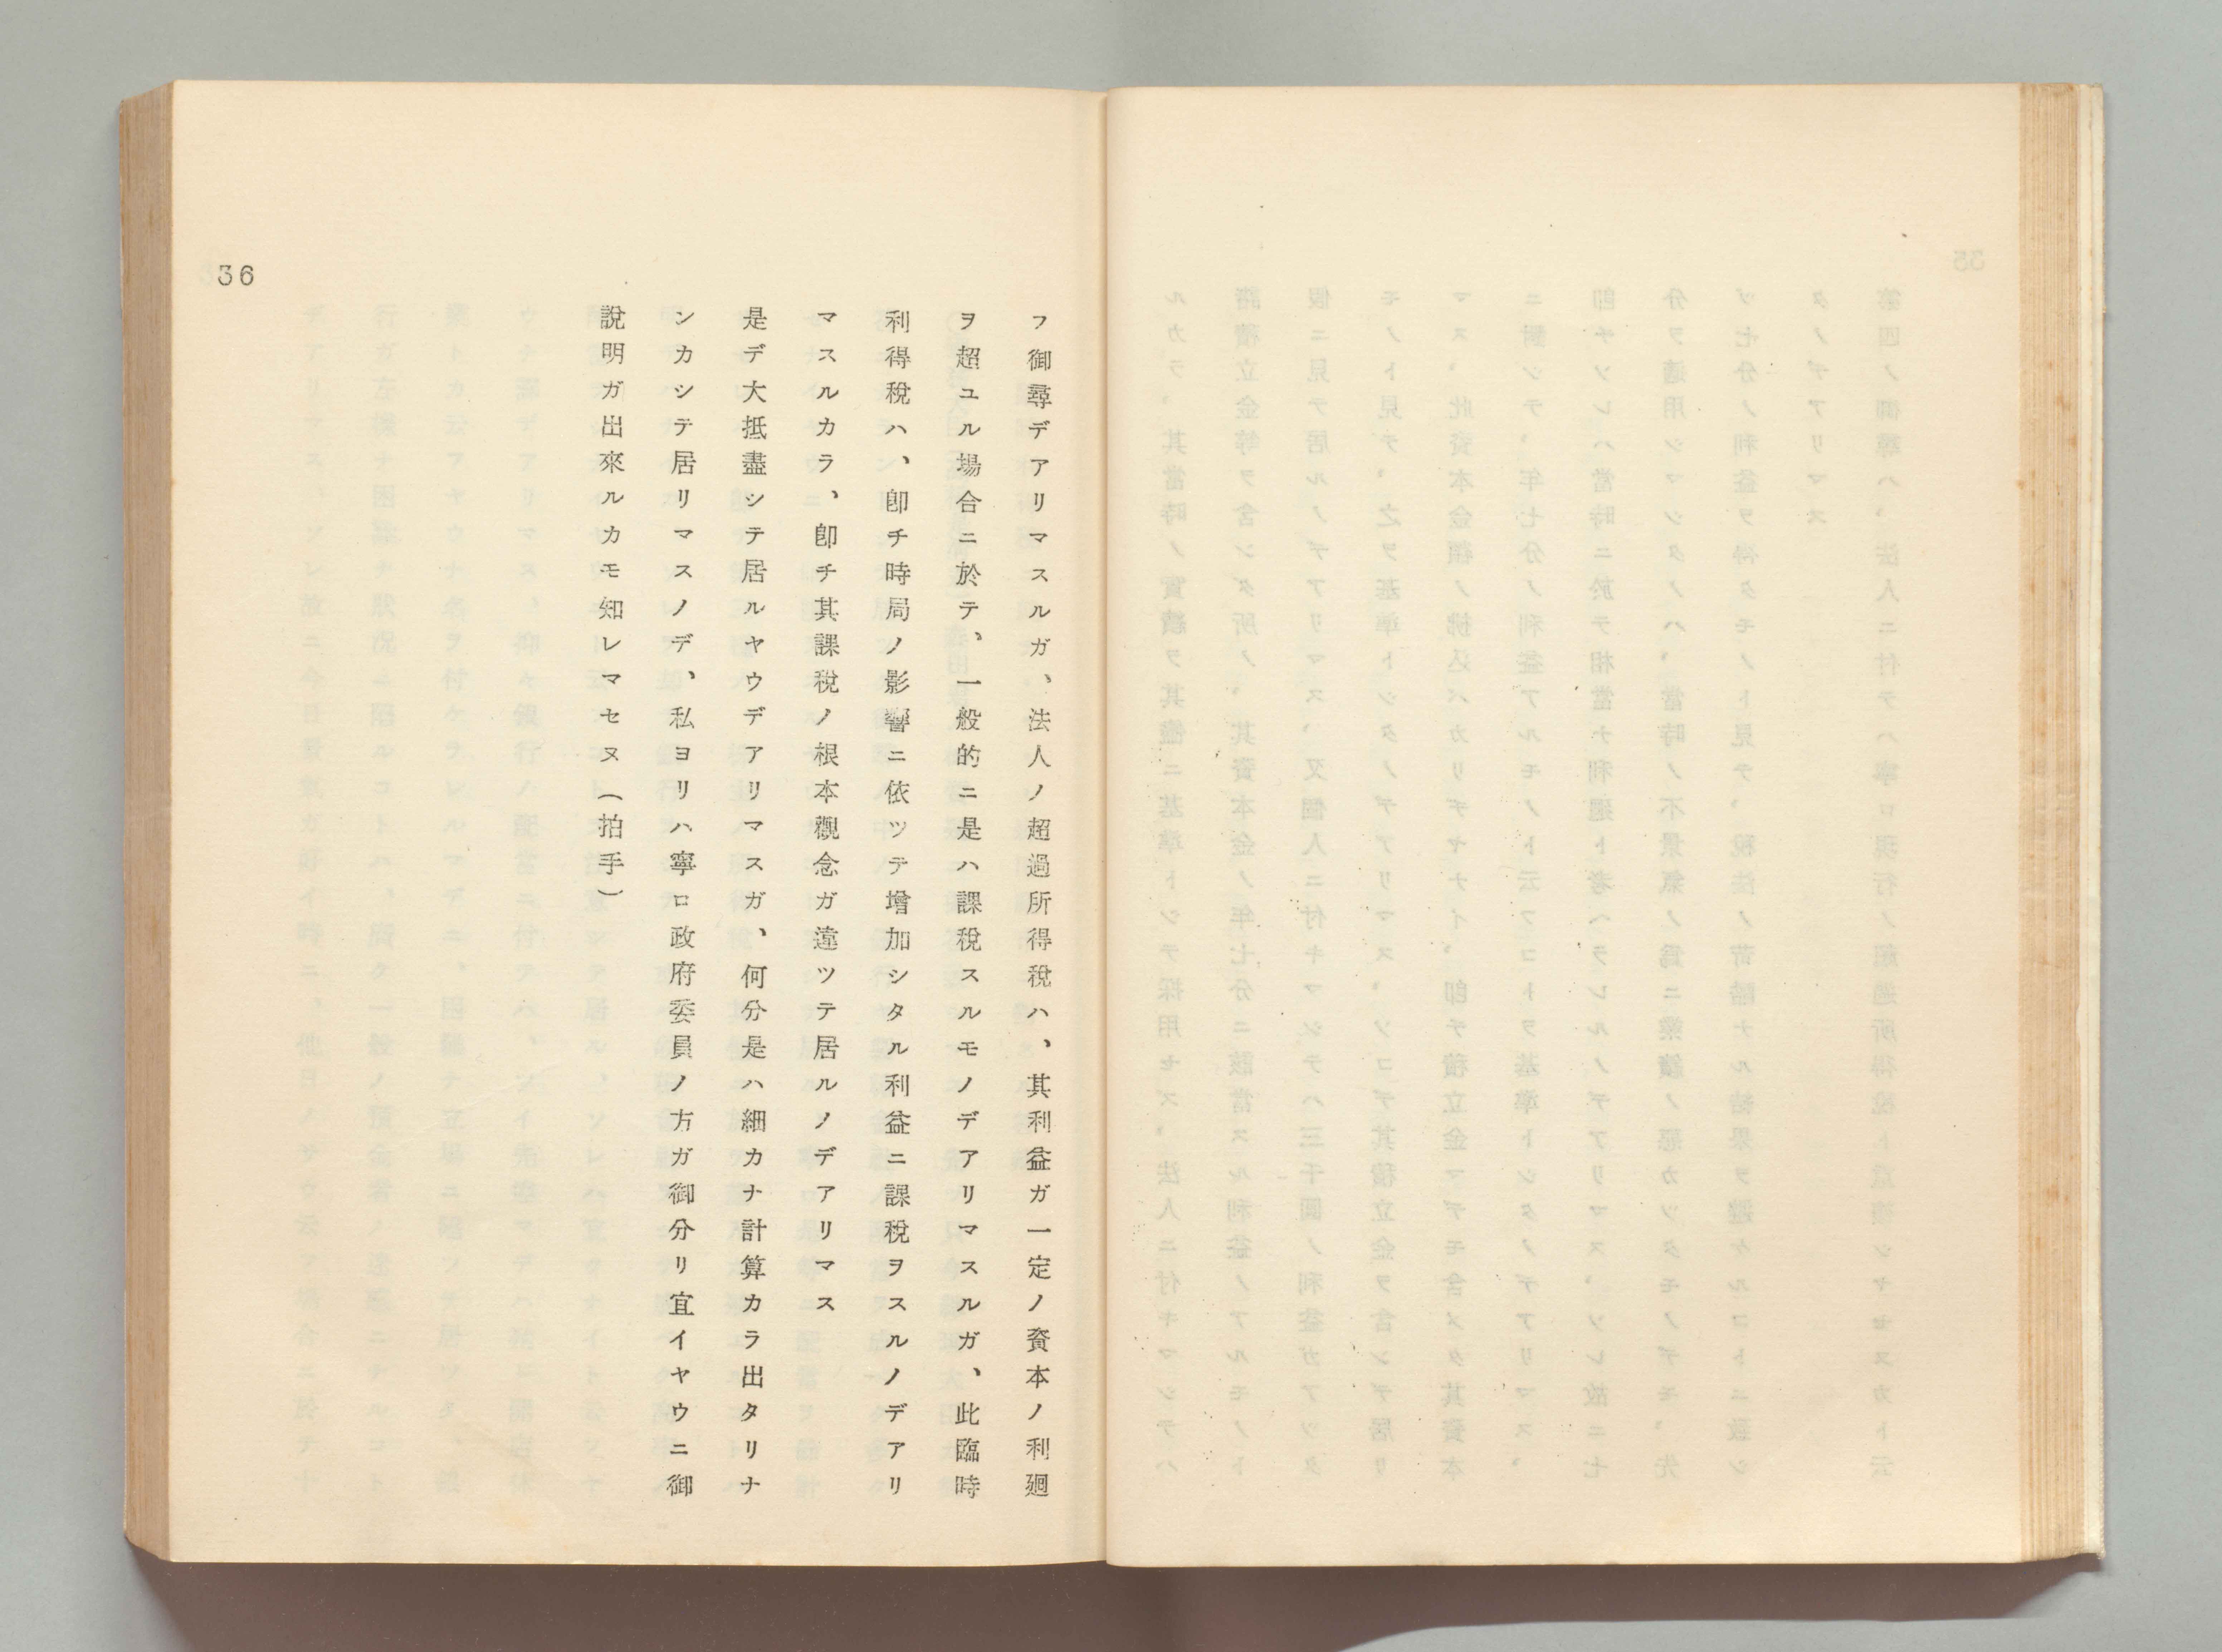 36
フ御尋デアリマスルガ、法人ノ超過所得稅ハ、其利益ガ一定ノ資本ノ利廻
ヲ超ユル場合ニ於テ、一般的ニ是ハ課稅スルモノデアリマスルガ、此臨時
利得稅ハ、卽チ時局ノ影響ニ依ツテ增加シタル利益ニ課稅ヲスルノデアリ
マスルカラ、卽チ其課稅ノ根本觀念ガ違ツテ居ルノデアリマス
是デ大抵盡シテ居ルヤウデアリマスガ、何分是ハ細カナ計算カラ出タリナ
ンカシテ居リマスノデ、私ヨリハ寧ロ政府委員ノ方ガ御分リ宜イヤウニ御
說明ガ出來ルカモ知レマセヌ（拍手）